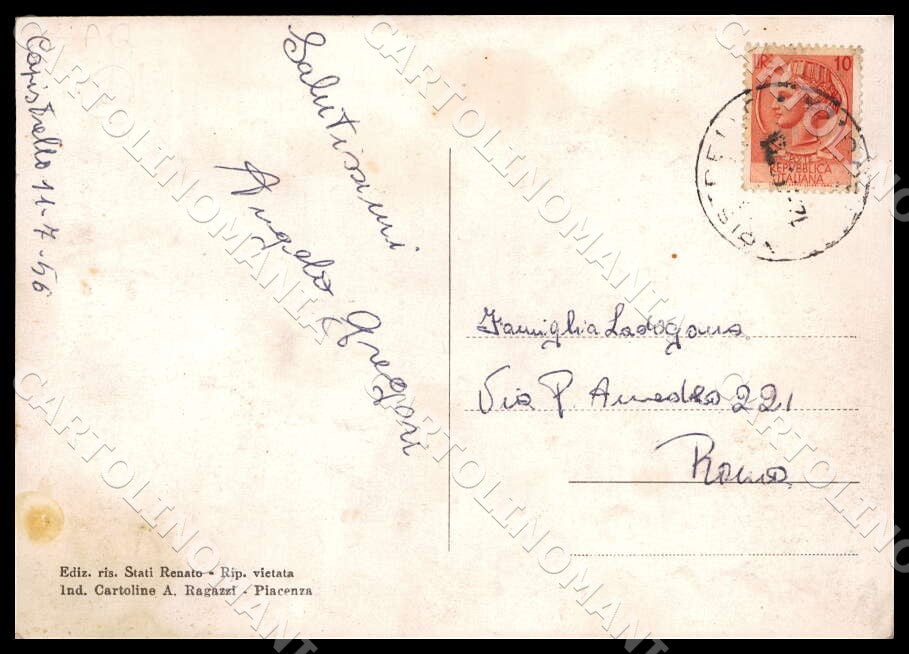 Capistrello 11-7-56
Salutissimi
Angelo Gregori
LIRE 10
REPVBBLICA
ITALIANA
Famiglia Ladogana
Via P. Amedeo 221
Roma
Ediz. ris. Stati Renato - Rip. vietata
Ind. Cartoline A. Ragazzi - Piacenza
CARTOLINOMANIA